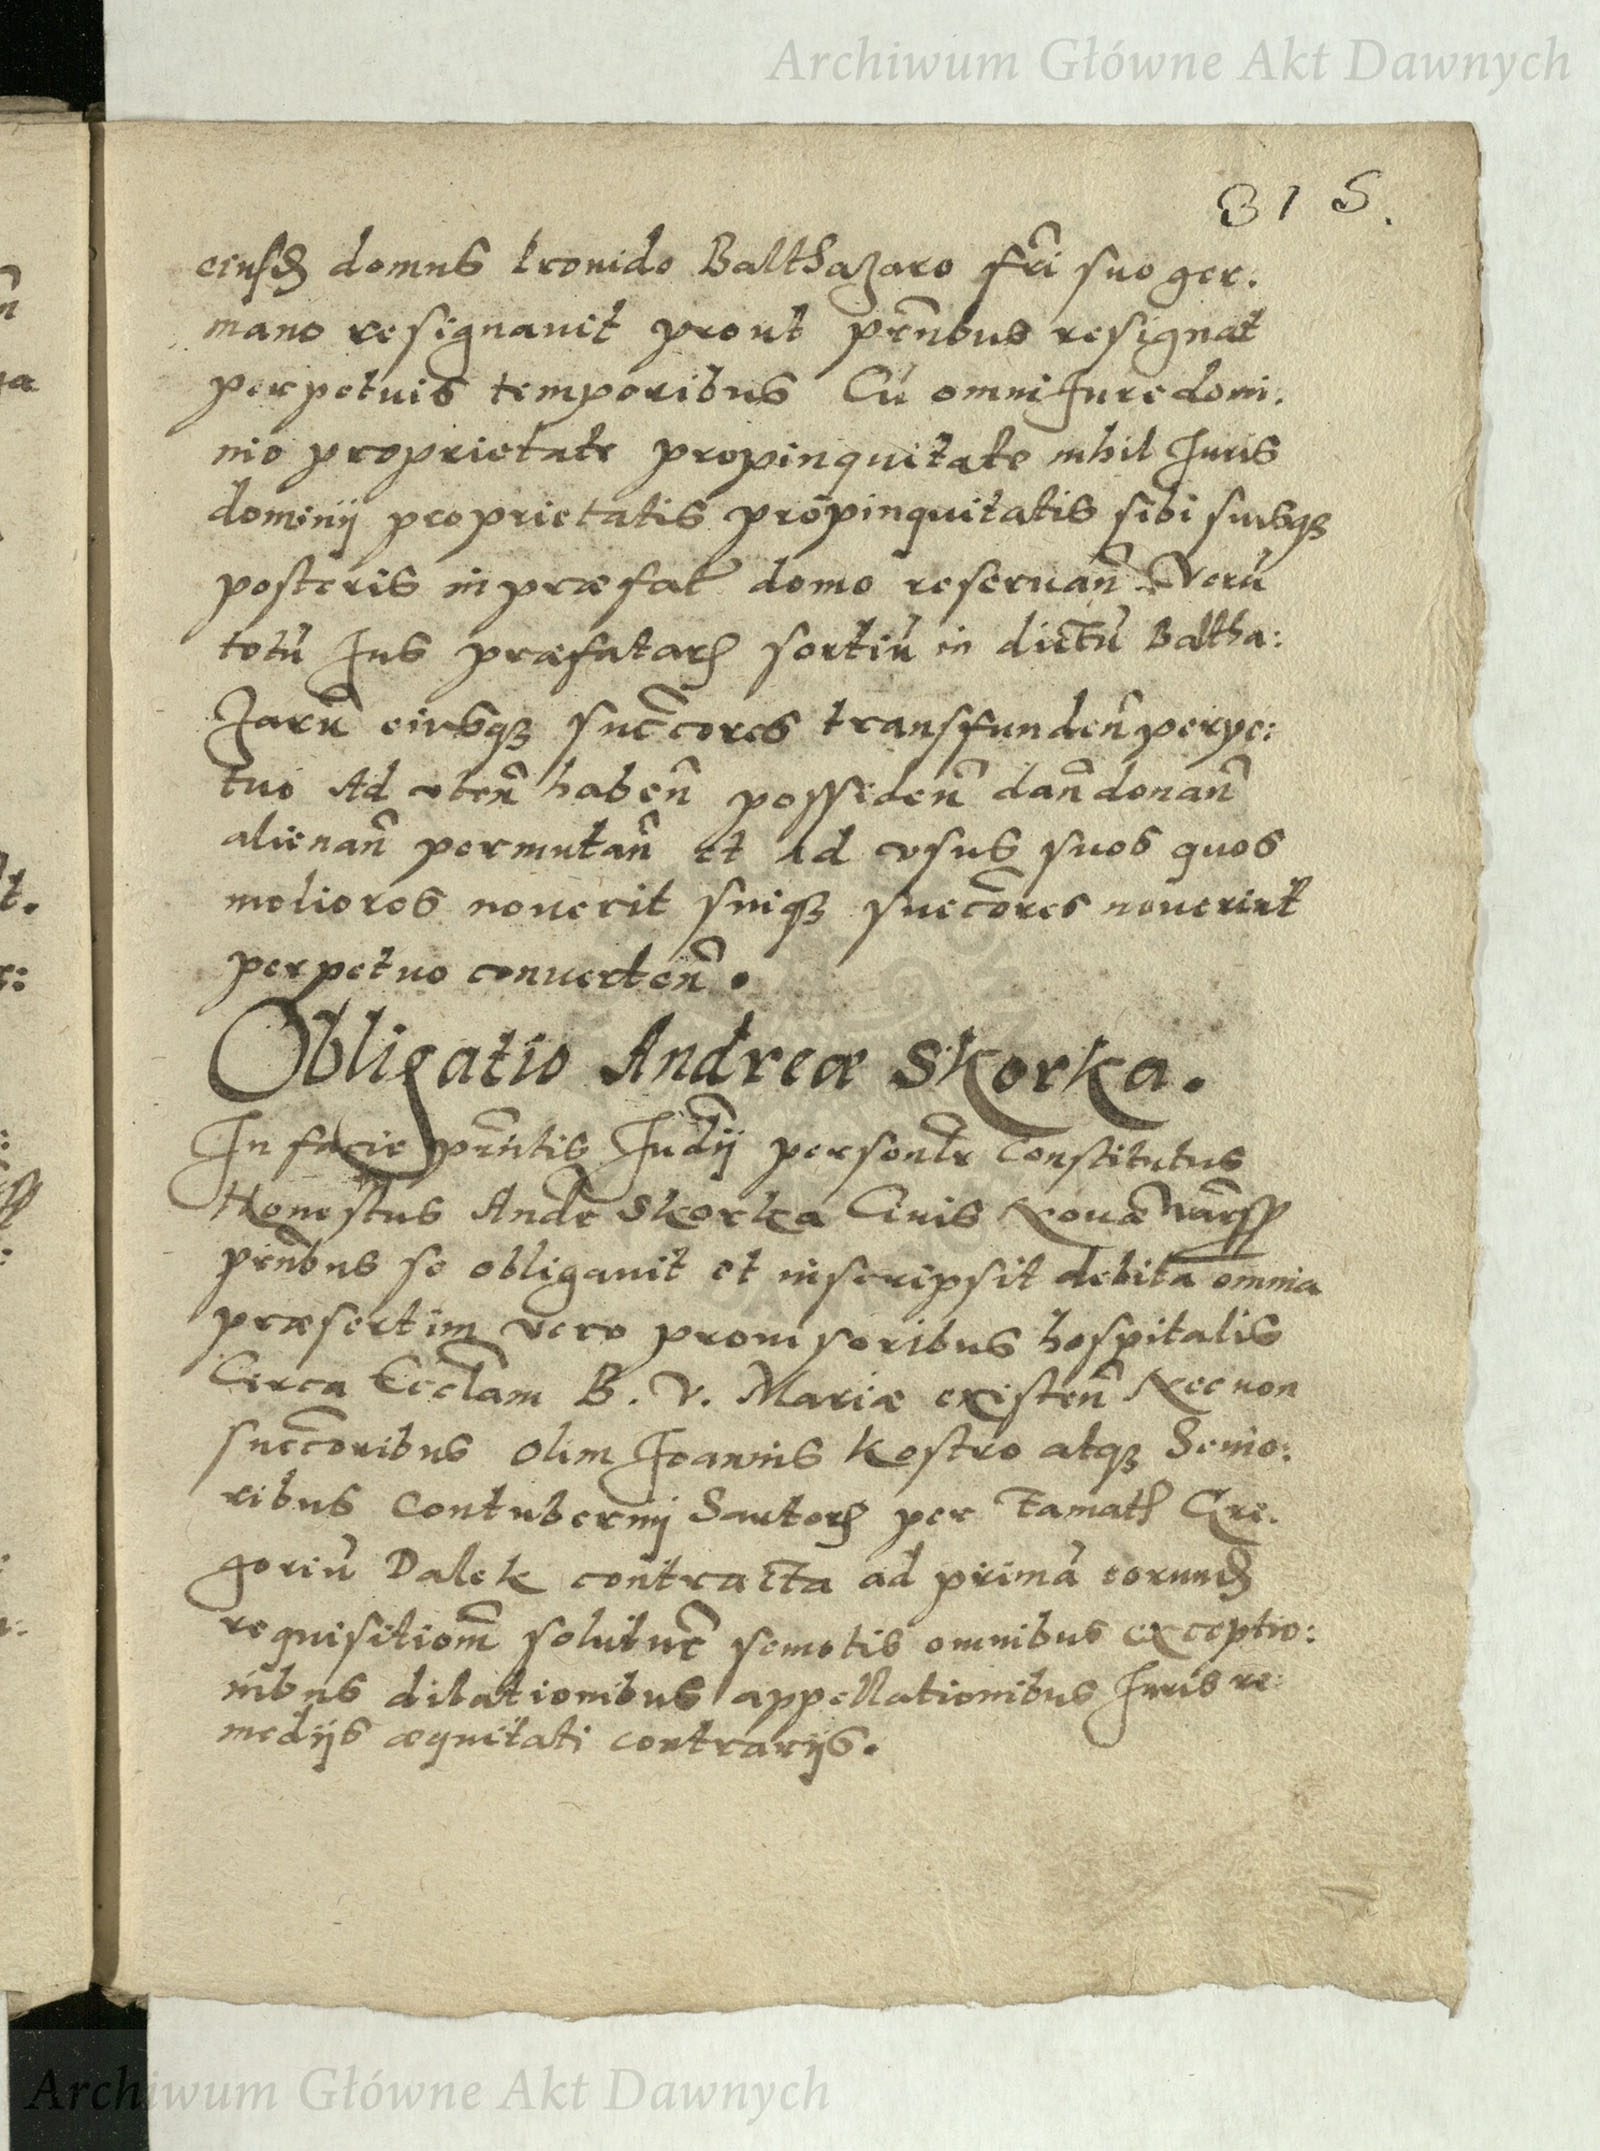 Archiwum Główne Akt Dawnych
315.
eiusd domus Provido Balthazaro fri suo ger.
mano resignavit prout prnbus resignat
perpetuis temporibus Cu omni Jure domi.
nio proprietate propinquitate nihil Juris
dominij proprietatis propinquitatis sibi suisqz
posteris in præfat domo reservan Veru
totu Jus præfatar sortiu in dictu Baltha:
zaru eiusqz succores transfunden perpe:
tuo Ad vten haben possiden dan donan
alienan permutan et ad vsus suos quos
meliores noverit suiqz succores noverint
perpetuo converten.
Obligatio Andreæ Skorka.
In facie prntis Judij personlr Constitutus
Honestus Andr Skorka Civis Novæ Warss
prnbus se obligavit et inscripsit debita omnia
præsertim vero provisoribus hospitalis
Circa Ecclam B. V. Mariæ existen Nec non
succoribus olim Joannis Kostro atqz Senio:
ribus Contubernij Sartor per famat Gre.
goriu Dalek contracta ad prima eorund
requisitiom solutur semotis omnibus exceptio:
nibus dilationibus appellationibus Juris re:
medijs æquitati contrarijs.
Archiwum Główne Akt Dawnych